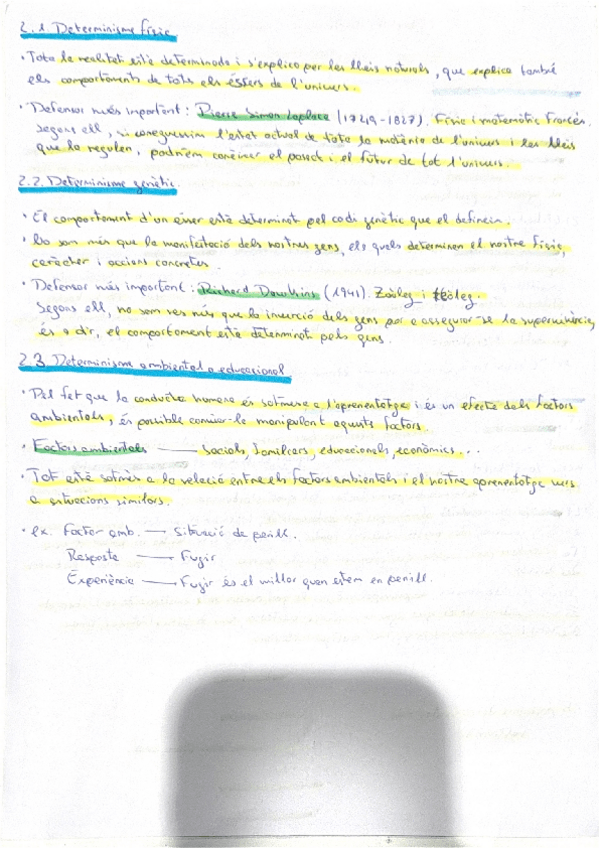 2.1. Determinisme físic
· Tota la realitat està determinada i s'explica per les lleis naturals, que explica també
els comportaments de tots els éssers de l'univers.
· Defensor més important: Pierre Simon Laplace (1749-1827). Físic i matemàtic francés.
Segons ell, si coneguessim l'estat actual de tota la matèria de l'univers i les lleis
que la regulen, podríem conèixer el passat i el futur de tot l'univers.
2.2. Determinisme genètic.
· El comportament d'un ésser està determinat pel codi genètic que el defineix.
· No som més que la manifestació dels nostres gens, els quals determinen el nostre físic,
caràcter i accions concretes.
· Defensor més important: Richard Dawkins (1941). Zoòleg i
Segons ell, no som res més que la invenció dels gens per a assegurar-se la supervivència,
és a dir, el comportament està determinat pels gens.
2.3. Determinisme ambiental o educacional.
· Pel fet que la conducta humana és sotmesa a l'aprenentatge i és un efecte dels factors
ambientals, és possible canviar-la manipulant aquests factors.
· Factors ambientals — Socials, familiars, educacionals, econòmics...
· Tot està sotmès a la relació entre els factors ambientals i el nostre aprenentatge
a situacions similars.
· ex. Factor amb. → Situació de perill.
Resposta → Fugir
Experiència → Fugir és el millor quan estem en perill.